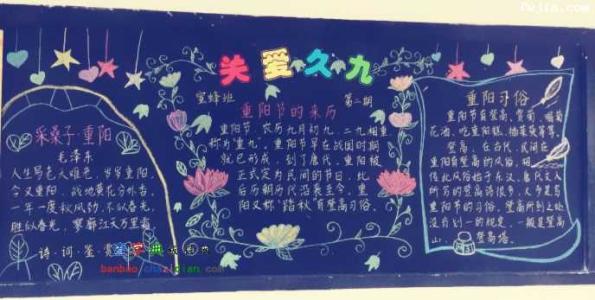 关爱久九
宣蜂班
第二期
采桑子·重阳
毛泽东
人生易老天难老,岁岁重阳
今又重阳,战地黄花分外香。
一年一度秋风劲,不似春光,
胜似春光,寥廓江天万里霜
诗·词·鉴·赏
重阳节的来历
重阳节,农历九月初九,二九相重
称为"重九"。重阳节早在战国时期
就已形成,到了唐代,重阳被
正式定为民间的节日,此
后历朝历代沿袭至今。重
阳又称"踏秋"有登高习俗。
重阳习俗
重阳节有登高、赏菊、喝菊
花酒、吃重阳糕、插茱萸等等。
登高,在古代,民间在
重阳有登高的风俗,相
传此风俗始于东汉。唐代文人
所写的登高诗很多,大多是写
重阳节的习俗。登高所到之处
没有划一的规定,一般是登高
山、登高塔。
查字典
banbao.chazidian.com